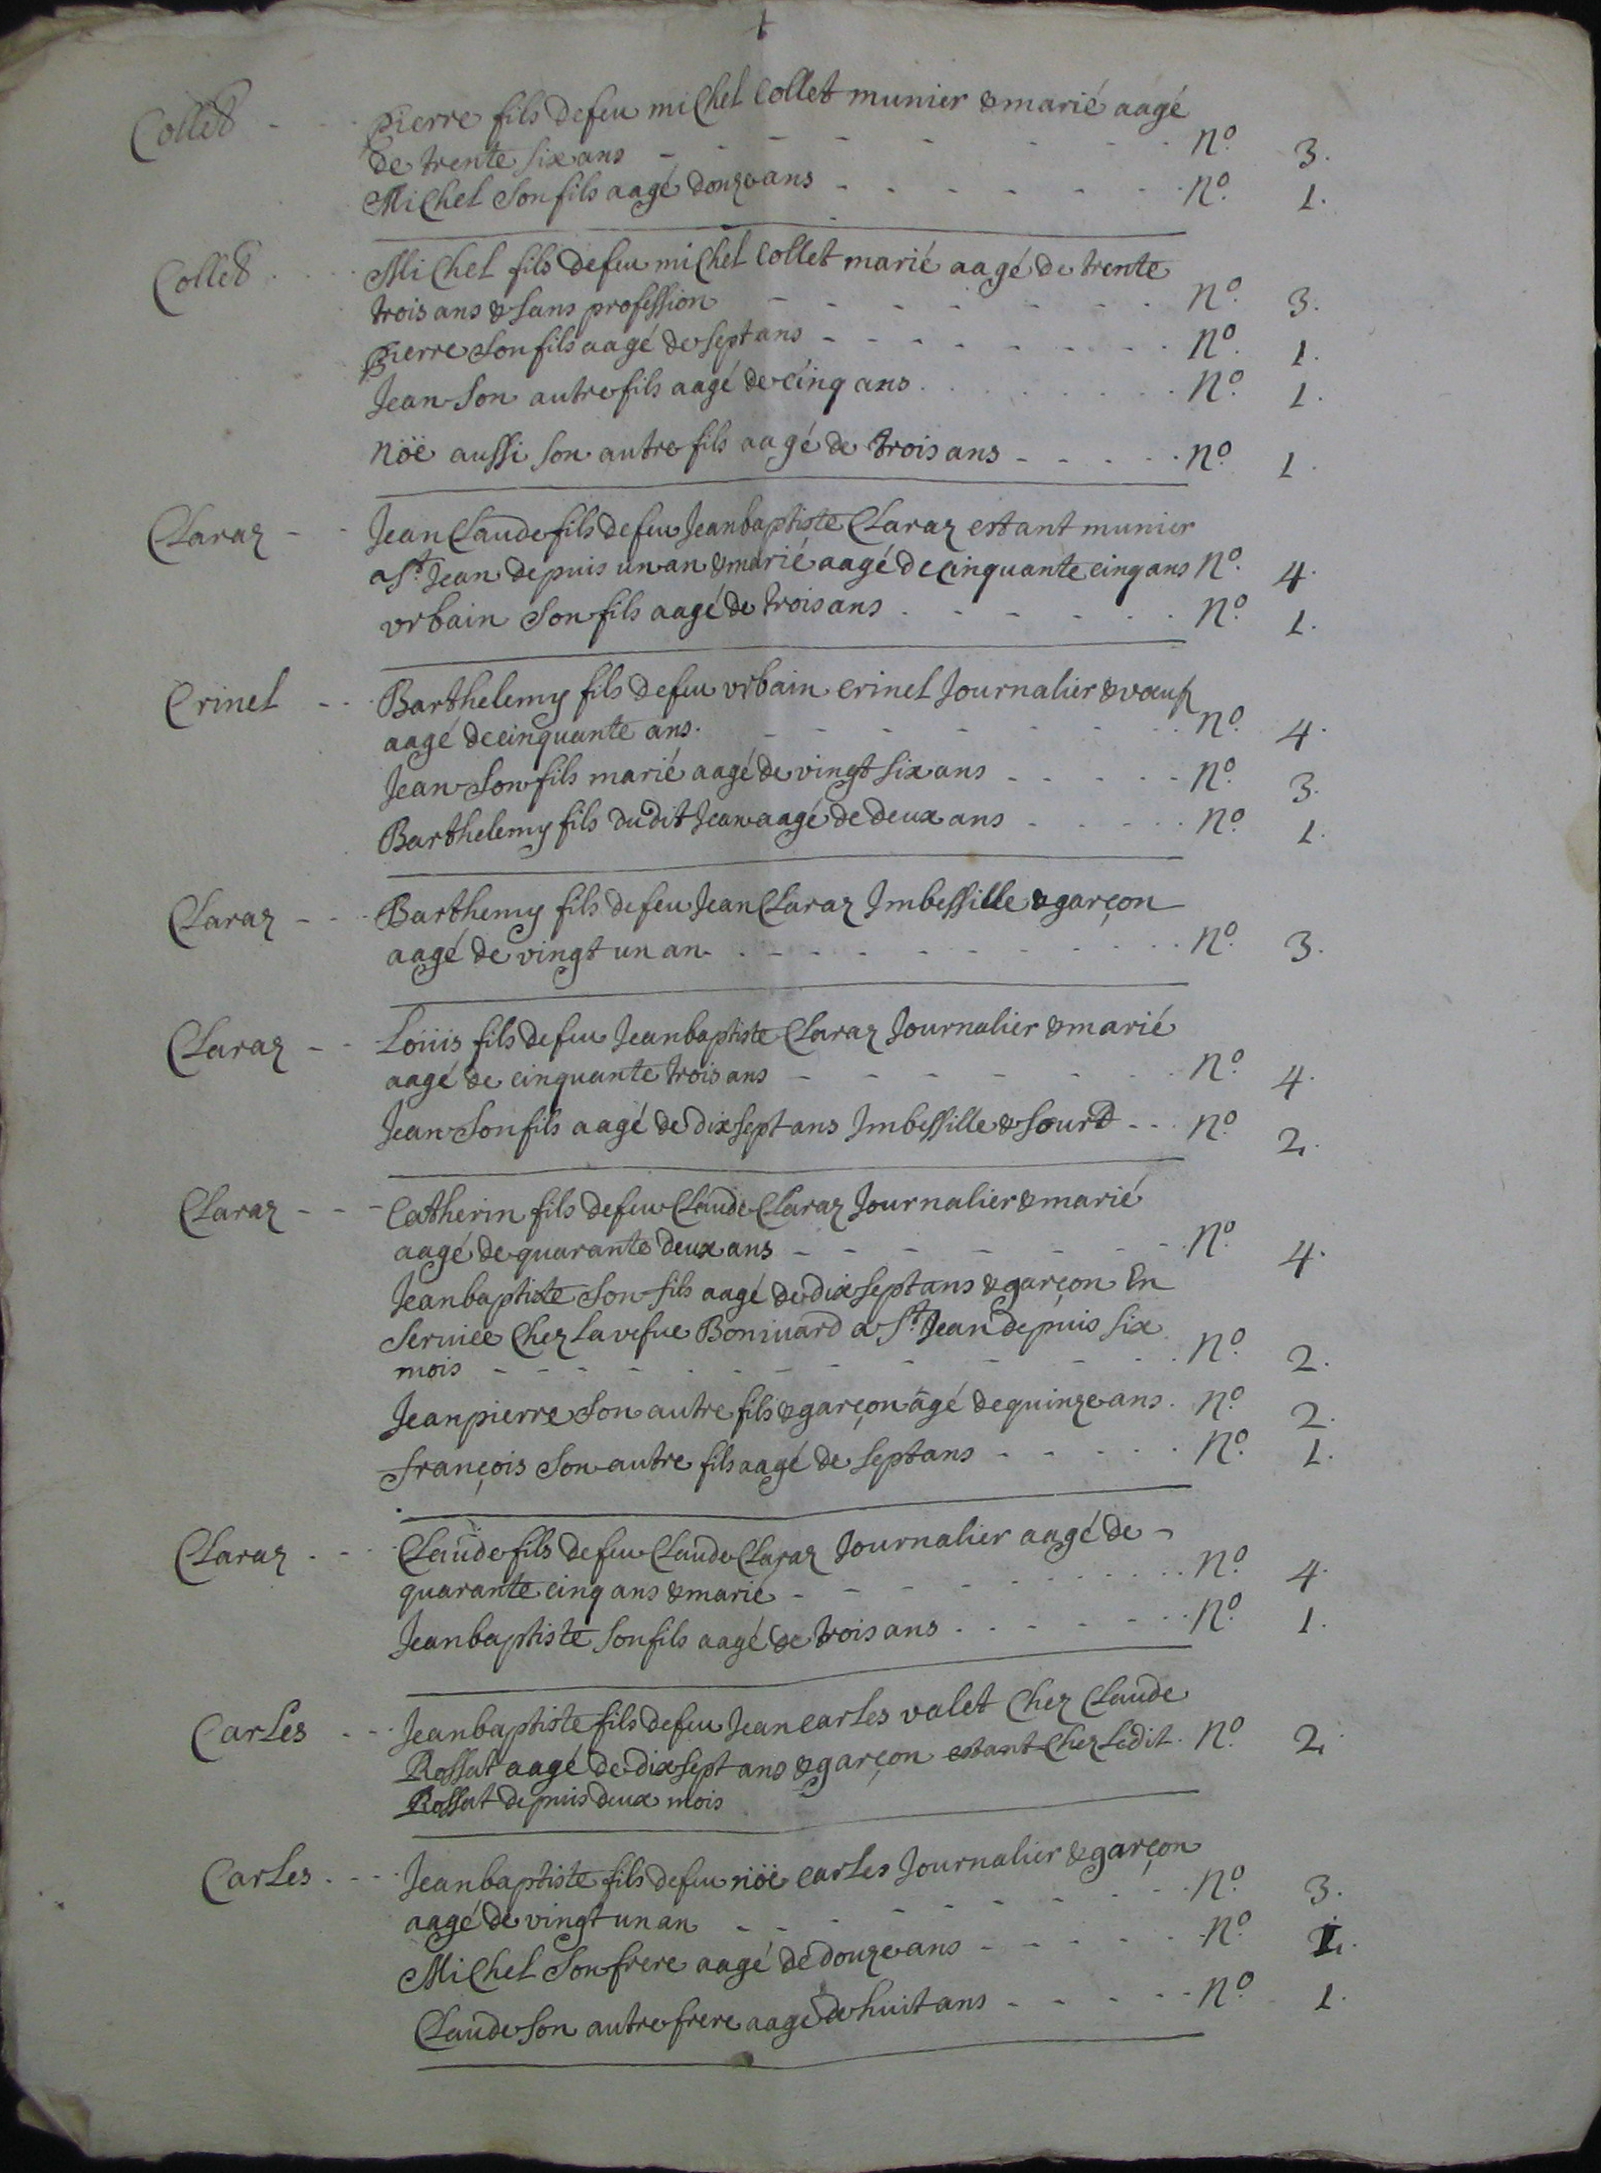 Collet - - Pierre fils de feu michel Collet munier & marié aagé
de trente six ans - - - - - - n.o 3.
Michel son fils aagé d'onze ans - - - - - n.o 1.
Collet - - Michel fils de feu michel Collet marié aagé de trente
trois ans & sans profession - - - - - - n.o 3.
Pierre son fils aagé de sept ans - - - - - - n.o 1.
Jean son autre fils aagé de cinq ans - - - - - n.o 1.
nöe aussi son autre fils aagé de trois ans - - - - n.o 1.
Claraz - - Jean Claude fils de feu Jean baptiste Claraz estant munier
a St. Jean depuis un an & marié aagé de cinquante cinq ans n.o 4.
vrbain son fils aagé de trois ans - - - - - n.o 1.
Crinel - - Barthelemy fils de feu vrbain crinel Journalier & vœuf
aagé de cinquante ans. - - - - - - n.o 4.
Jean son fils marié aagé de vingt six ans - - - - n.o 3.
Barthelemy fils dudit Jean aagé de deux ans - - - - n.o 1.
Claraz - - Barthemy fils de feu Jean Claraz Imbessille & garçon
aagé de vingt un an - - - - - - n.o 3.
Claraz - - Loüis fils de feu Jean baptiste Claraz Journalier & marié
aagé de cinquante trois ans - - - - - - n.o 4.
Jean son fils aagé de dix sept ans Imbessille & sourd - - n.o 2.
Claraz - - - Catherin fils de feu Claude Claraz Journalier & marié
aagé de quarante deux ans - - - - - - n.o 4.
Jean baptiste son fils aagé de dix sept ans & garçon En
seruice Chez la vefue Boniuard a St. Jean depuis six
mois - - - - - - - - - n.o 2.
Jean pierre son autre fils & garçon âgé de quinze ans. n.o 2.
françois son autre fils aagé de sept ans - - - - n.o 1.
Claraz - - - Claude fils de feu Claude Claraz Journalier aagé de -
quarante cinq ans & marié - - - - - - n.o 4.
Jean baptiste son fils aagé de trois ans - - - - - n.o 1.
Carles - - Jean baptiste fils de feu Jean carles valet Chez Claude
Rossat aagé de dix sept ans & garçon estant Chez Ledit. n.o 2.
Rossat depuis deux mois
Carles - - - Jean baptiste fils de feu nöe carles Journalier & garçon
aagé de vingt un an - - - - - - n.o 3.
Michel son frere aagé de douze ans - - - - - n.o 1.
Claude son autre frere aagé de huit ans - - - - n.o 1.